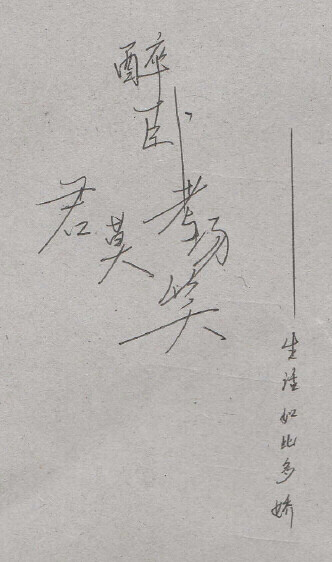 醉卧考场
君莫笑
——生活如此多娇